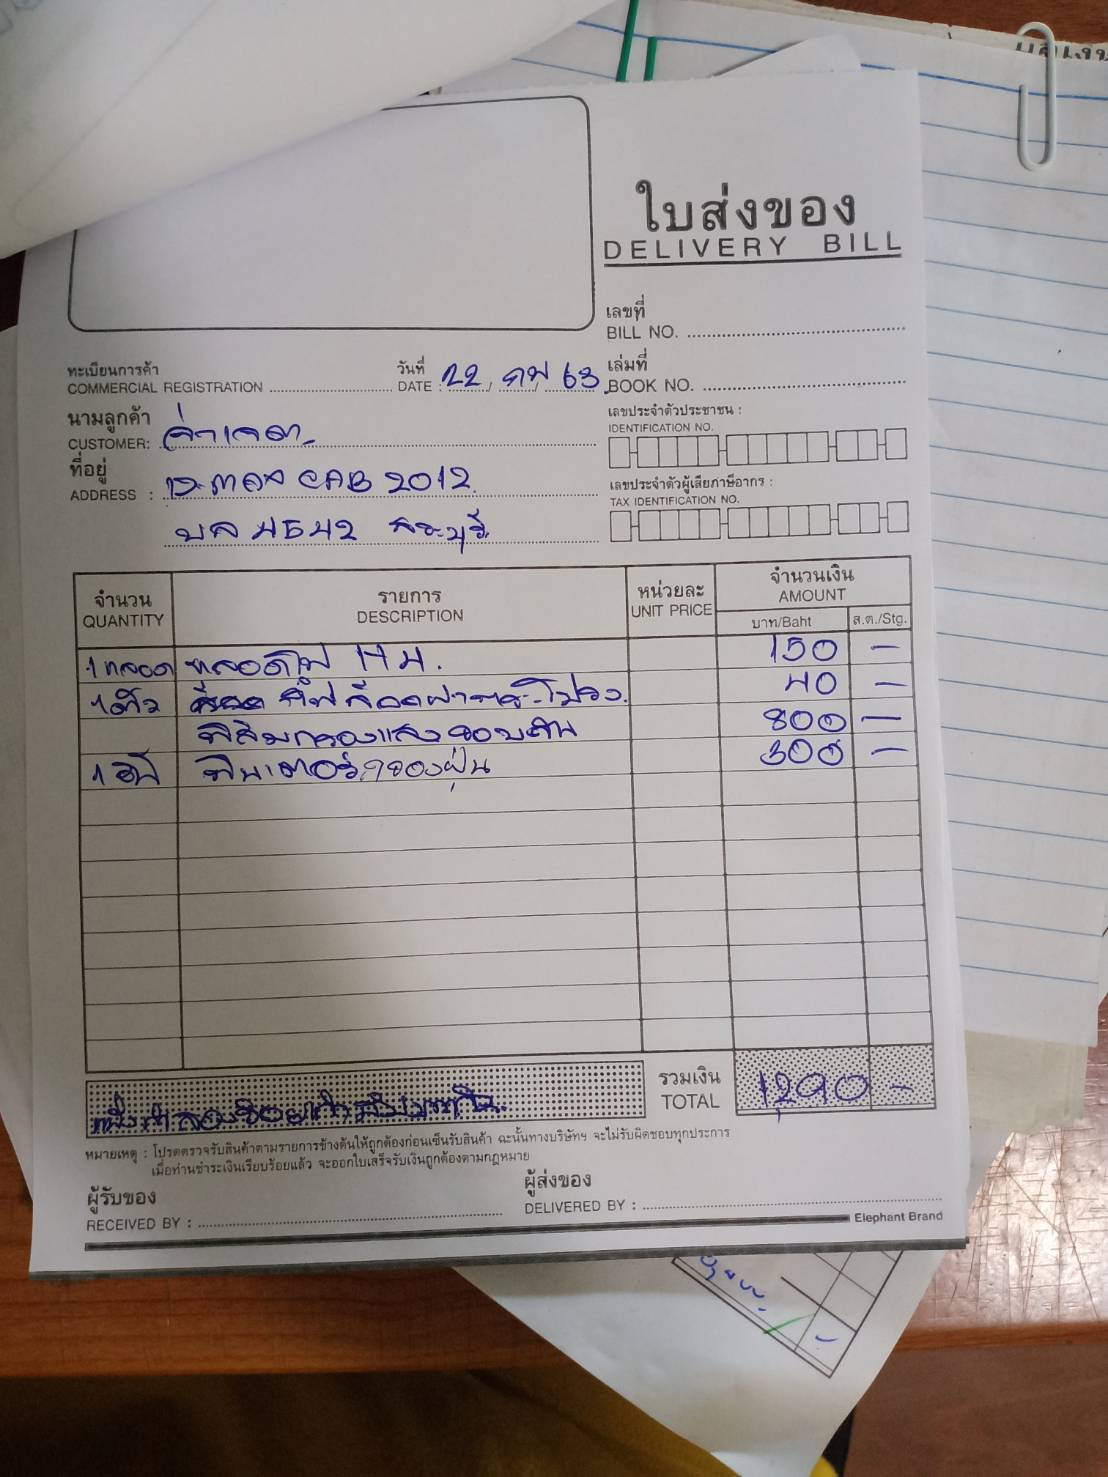 ใบส่งของ
DELIVERY BILL
เลขที่
BILL NO.
ทะเบียนการค้า
COMMERCIAL REGISTRATION
วันที่
DATE : 22 / กพ / 63
เล่มที่
BOOK NO.
นามลูกค้า
CUSTOMER:
เลขประจำตัวประชาชน :
IDENTIFICATION NO.
ที่อยู่
ADDRESS : 2012
4542 สระบุรี
เลขประจำตัวผู้เสียภาษีอากร :
TAX IDENTIFICATION NO.
จำนวน
QUANTITY
รายการ
DESCRIPTION
หน่วยละ
UNIT PRICE
จำนวนเงิน
AMOUNT
บาท/Baht
ส.ต./Stg.
1 หลอด หลอดไฟ H4. 150 -
1 ตัว 40 -
ฟิล์มกรองแสง 800 -
1 อัน ฟินเตอร์กรองฝุ่น 300 -
รวมเงิน
TOTAL
1,290 -
หมายเหตุ : โปรดตรวจรับสินค้าตามรายการข้างต้นให้ถูกต้องก่อนเซ็นรับสินค้า ฉะนั้นทางบริษัทฯ จะไม่รับผิดชอบทุกประการ
เมื่อท่านชำระเงินเรียบร้อยแล้ว จะออกใบเสร็จรับเงินถูกต้องตามกฎหมาย
ผู้รับของ
RECEIVED BY :
ผู้ส่งของ
DELIVERED BY :
Elephant Brand